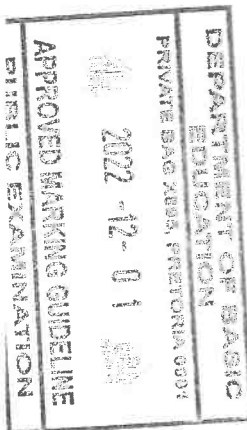 DEPARTMENT OF BASIC
EDUCATION
PRIVATE BAG X895, PRETORIA 0001
2022 -12- 01
APPROVED MARKING GUIDELINE
PUBLIC EXAMINATION